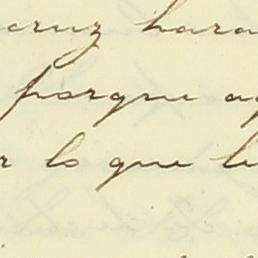 cruz hara
porque ag
r lo que le